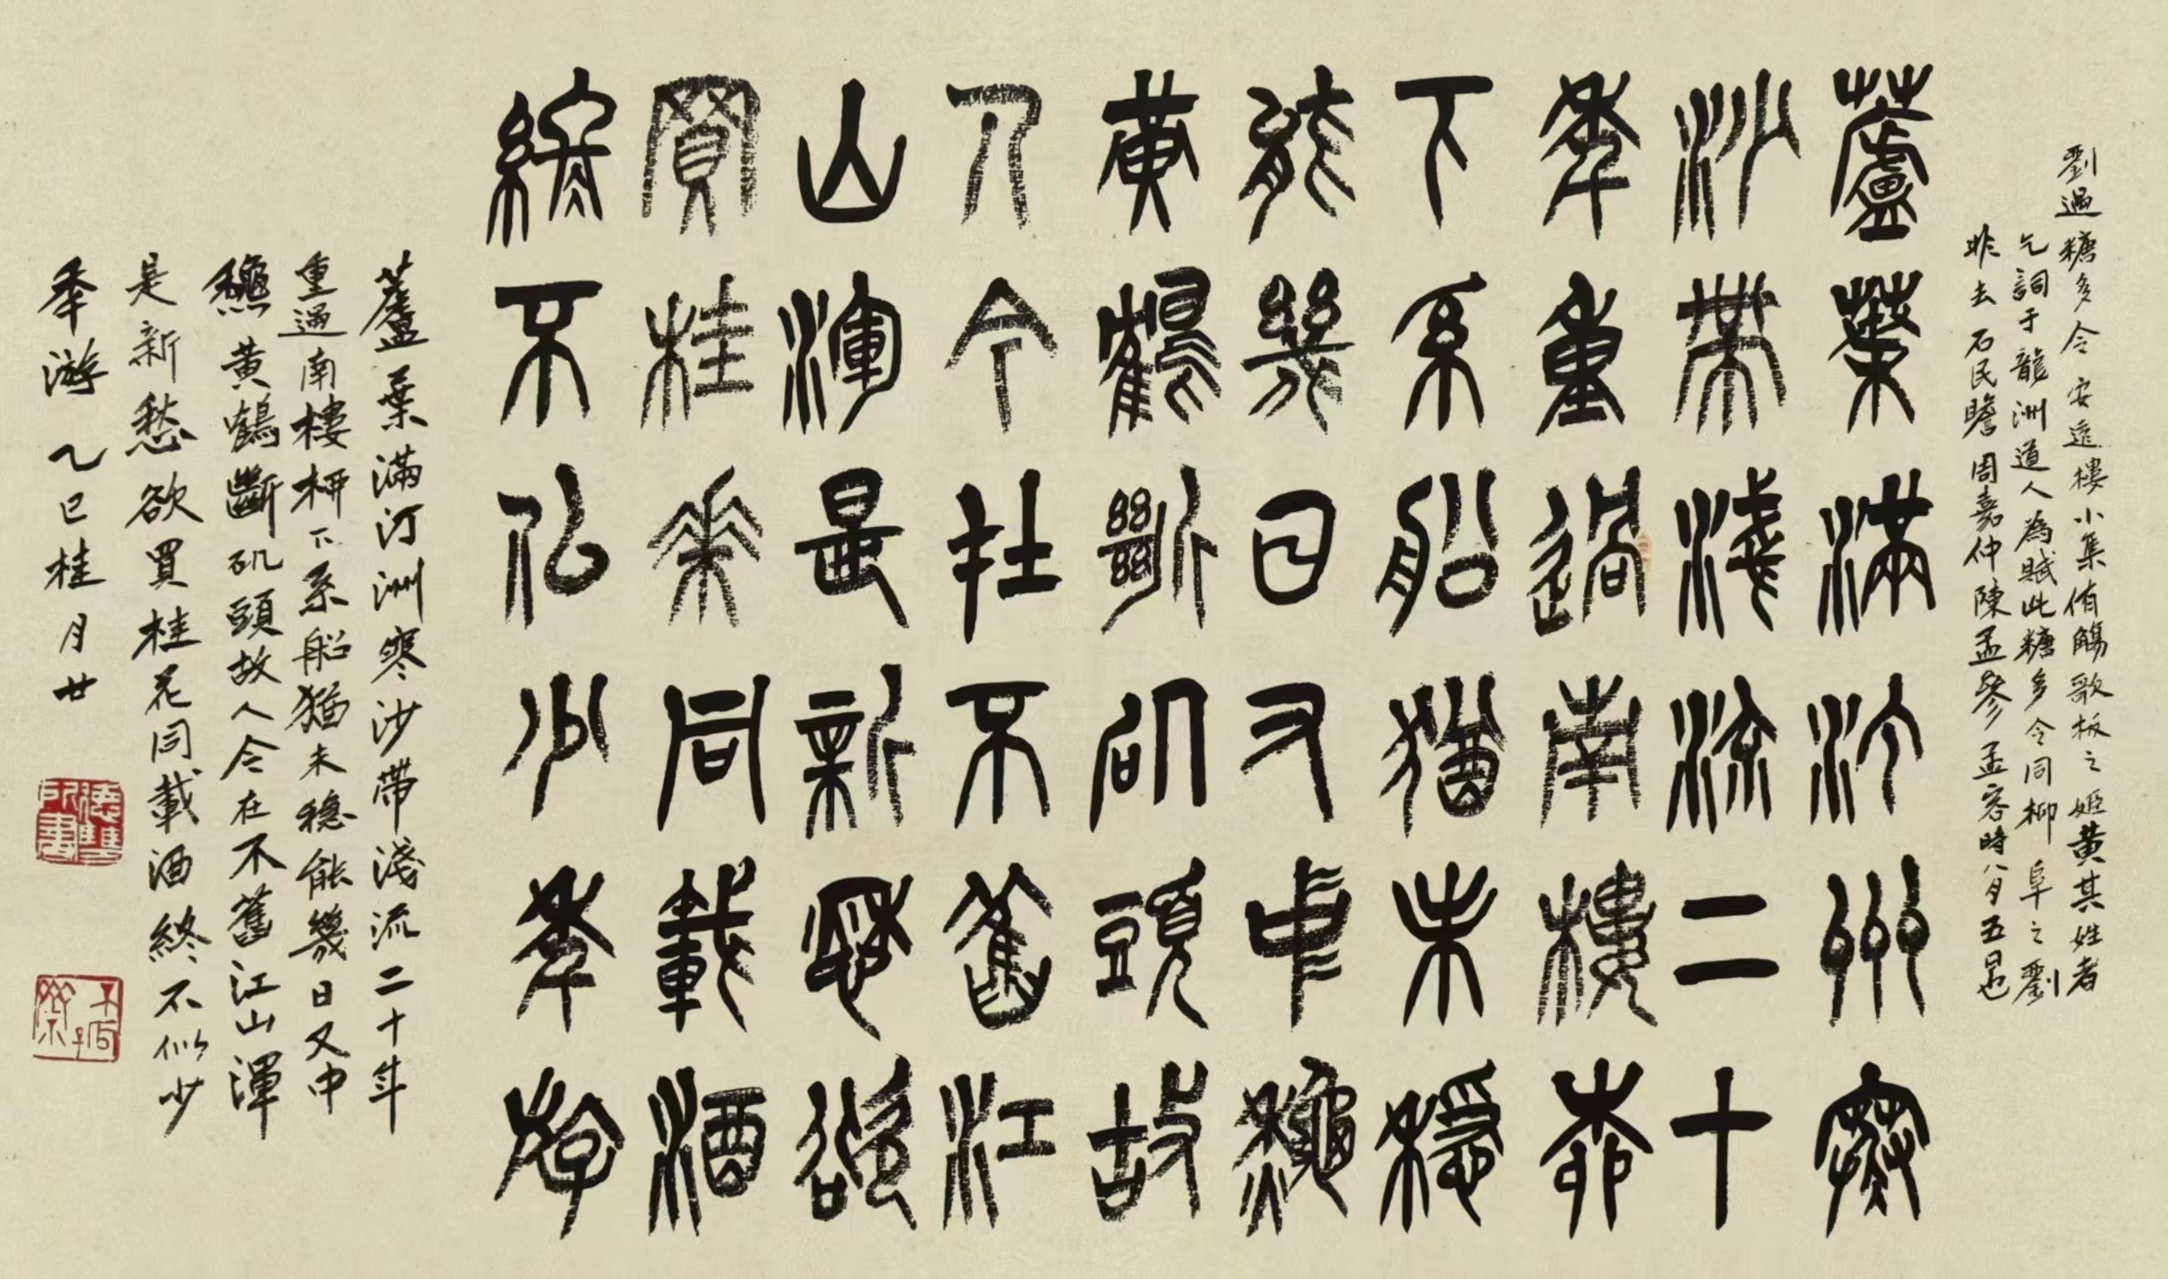 劉過糖多令 安遠樓小集侑觴歌板之姬黃其姓者
乞詞于龍洲道人為賦此糖多令同柳阜之劉
非去石民瞻周嘉仲陳孟參孟容時八月五日也
蘆葉滿汀洲寒
沙帶淺流二十
年重過南樓柳
下系船猶未穩
能幾日又中秋
黃鶴斷矶頭故
人今在不舊江
山渾是新愁欲
買桂花同載酒
終不似少年游
蘆葉滿汀洲寒沙帶淺流二十年
重過南樓柳下系船猶未穩能幾日又中
龝黃鶴斷矶頭故人今在不舊江山渾
是新愁欲買桂花同載酒終不似少
年游 乙巳桂月廿